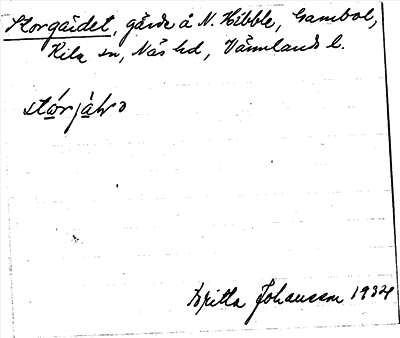 Storgårdet, gårde å N. Hibble, Gambol,
Kila sn, Näs hd, Värmlands l.
Britta Johansson 1934